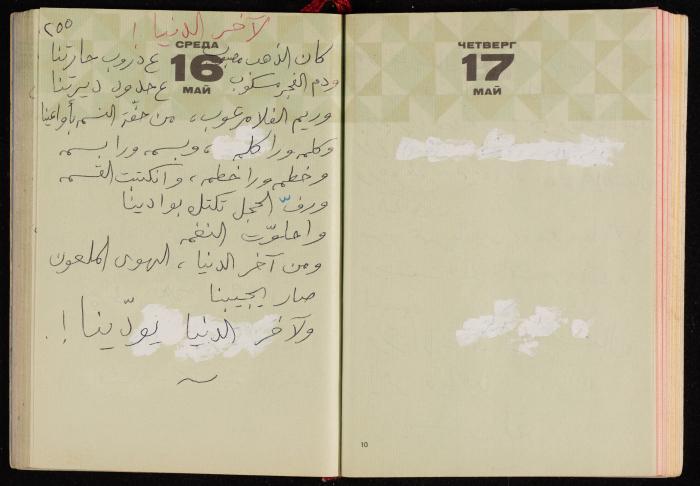 ٢٥٥
لآخر الدنيا!
СРЕДА
16
МАЙ
كان الذهب ع دروب حارتنا
ودم الفجر مسكوب ع حدود ديرتنا
وريم الفلا مرعوب، من خفّة النسم بأواعينا
وكلمه ورا كلمه، وبسمه ورا بسمه
وخطمه ورا خطمه، وانكتبت القسمه
ورفّ الحجل تكتك بوادينا
واحلوّت النغمه
ومن آخر الدنيا، الهوى الملعون
صار يجيبنا
ولآخر الدنيا يودّينا!.
ЧЕТВЕРГ
17
МАЙ
10